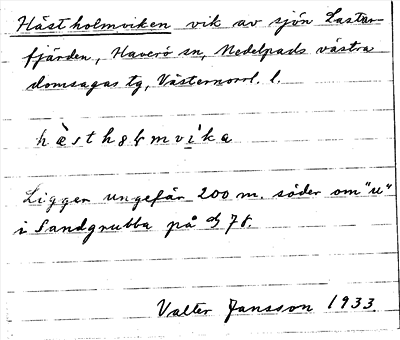 Hästholmviken vik av sjön Lastar-
fjärden, Haverö sn, Medelpads västra
domsagas tg, Västernorrl. l.
hæ̀sthɵɫmvi̇̀ka
Ligger ungefär 200 m. söder om "u"
i Sandgrubba på 78.
Valter Jansson 1933